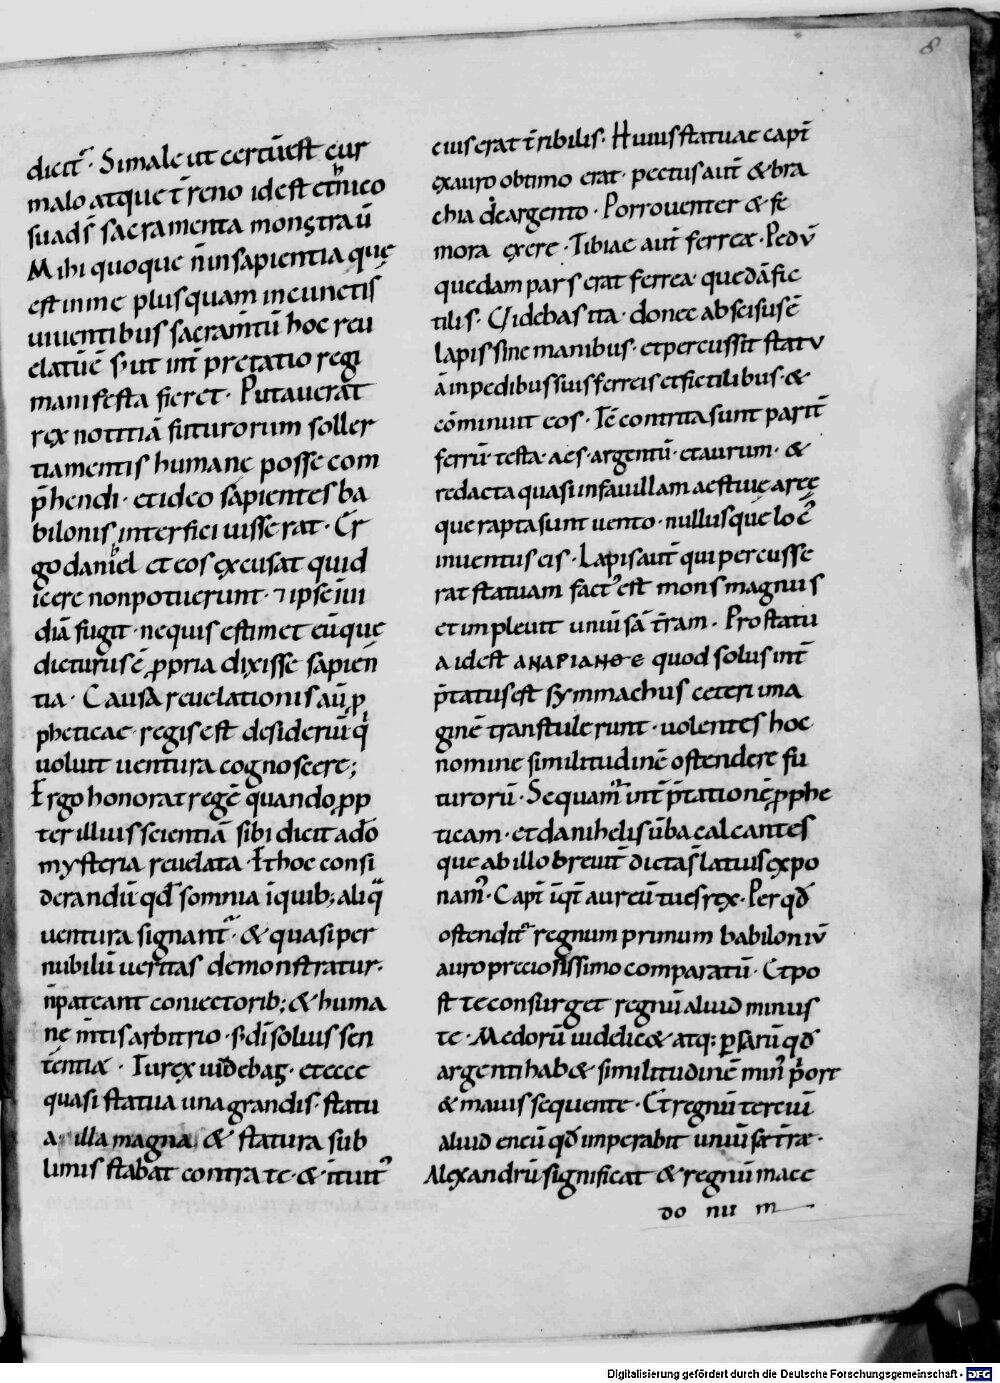 8
dicit᷑. Si male ut certū est cur
malo atque t̄reno id est ethnico
suad; sacramenta monstrau᷑
Mihi quoque n̄ in sapientia que
est in me plus quam in cunctis
uiuentibus sacram̄tū hoc reu
elatū ē s; ut int̄pretatio regi
manifesta fieret. Putauerat
rex notitiā futurorum soller
tia mentis humanę posse com
p̄hendi. et ideo sapientes ba
bilonis interfici iusserat. Er
go daniel et eos excusat qui d
icere non potuerunt. ⁊ ipse īui
diā fugit. ne quis estimet eū que
dicturus ē ꝓpria dixisse sapien̄
tia. Causa reuelationis aū ꝓ
pheticae. regis est desideriū q̄
uoluit uentura cognoscere;
Ergo honorat regē quando ꝓp
ter illius scientiā sibi dicit a do
mysteria reuelata. Et hoc consi
derandū qđ somnia ī quib; aliq̄
uentura signant᷑. & quasi per
nubilū ueritas demonstratur.
n̄ pateant coniectorib; & huma
nę m̄tis arbitrio. s; dī solius sen
tentiæ. Tu rex uidebas. et ecce
quasi statua una grandis. statu
a illa magna & statura sub
limis stabat contra te. & ītuit᷑
eius erat t̄ribilis. Huius statuae cap̄
ex auro obtimo erat. pectus aut̄ & bra
chia de argento. Porro uenter & fe
mora ex ere. Tibiae aut̄ ferreæ. Pedū
quedam pars erat ferrea. quedā fic
tilis. Uidebas ita. donec abscisus ē
lapis sine manibus. et percussit statu
ā in pedibus suis ferreis et fictilibus. &
cōminuit eos. Tc̄ contrita sunt parit̄
ferrū testa. aes. argentū. et aurum. &
redacta quasi in fauillam aestiuę areę
que rapta sunt uento. nullusque loc᷒
inuentus eis. Lapis aut̄ qui percusse
rat statuam fact᷒ est mons magnus
et impleuit uniū sā t̄ram. Pro statu
a id est ΑΝΔΡΙΑΝΘΕ quod solus int̄
p̄tatus est symmachus ceteri ima
ginē transtulerunt. uolentes hoc
nomine similitudinē ostendere fu
turorū. Sequam᷑ int̄p̄tationē ꝓphe
ticam. et danihelis ūba calcantes
que ab illo breuit̄ dicta s̄ latius expo
nam᷒. Cap̄ īqt̄ aureū tu es rex. Per qđ
ostendit᷑ regnum primum babiloniū
auro preciosissimo comparatū. Et po
st te consurget regnū aliud minus
te. Medorū uidelic& atq; ꝑsarū qđ
argenti hab& similitudinē min᷒ p̄ori
& maius sequente. Et regnū terciū
aliud eneū qđ imperabit uniūsę t̄ræ.
Alexandrū significat & regnū mace
do nu m
Digitalisierung gefördert durch die Deutsche Forschungsgemeinschaft - DFG